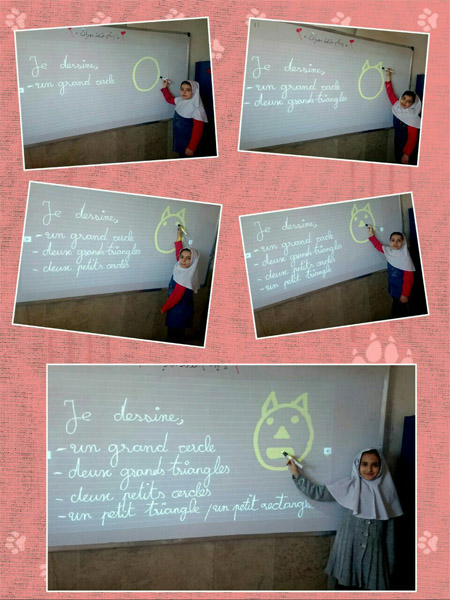 Je dessine,
- un grand cercle
Je dessine,
- un grand cercle
- deux grands triangles
Je dessine,
- un grand cercle
- deux grands triangles
- deux petits cercles
Je dessine,
- un grand cercle
- deux grands triangles
- deux petits cercles
- un petit triangle
Je dessine,
- un grand cercle
- deux grands triangles
- deux petits cercles
- un petit triangle / un petit rectangle